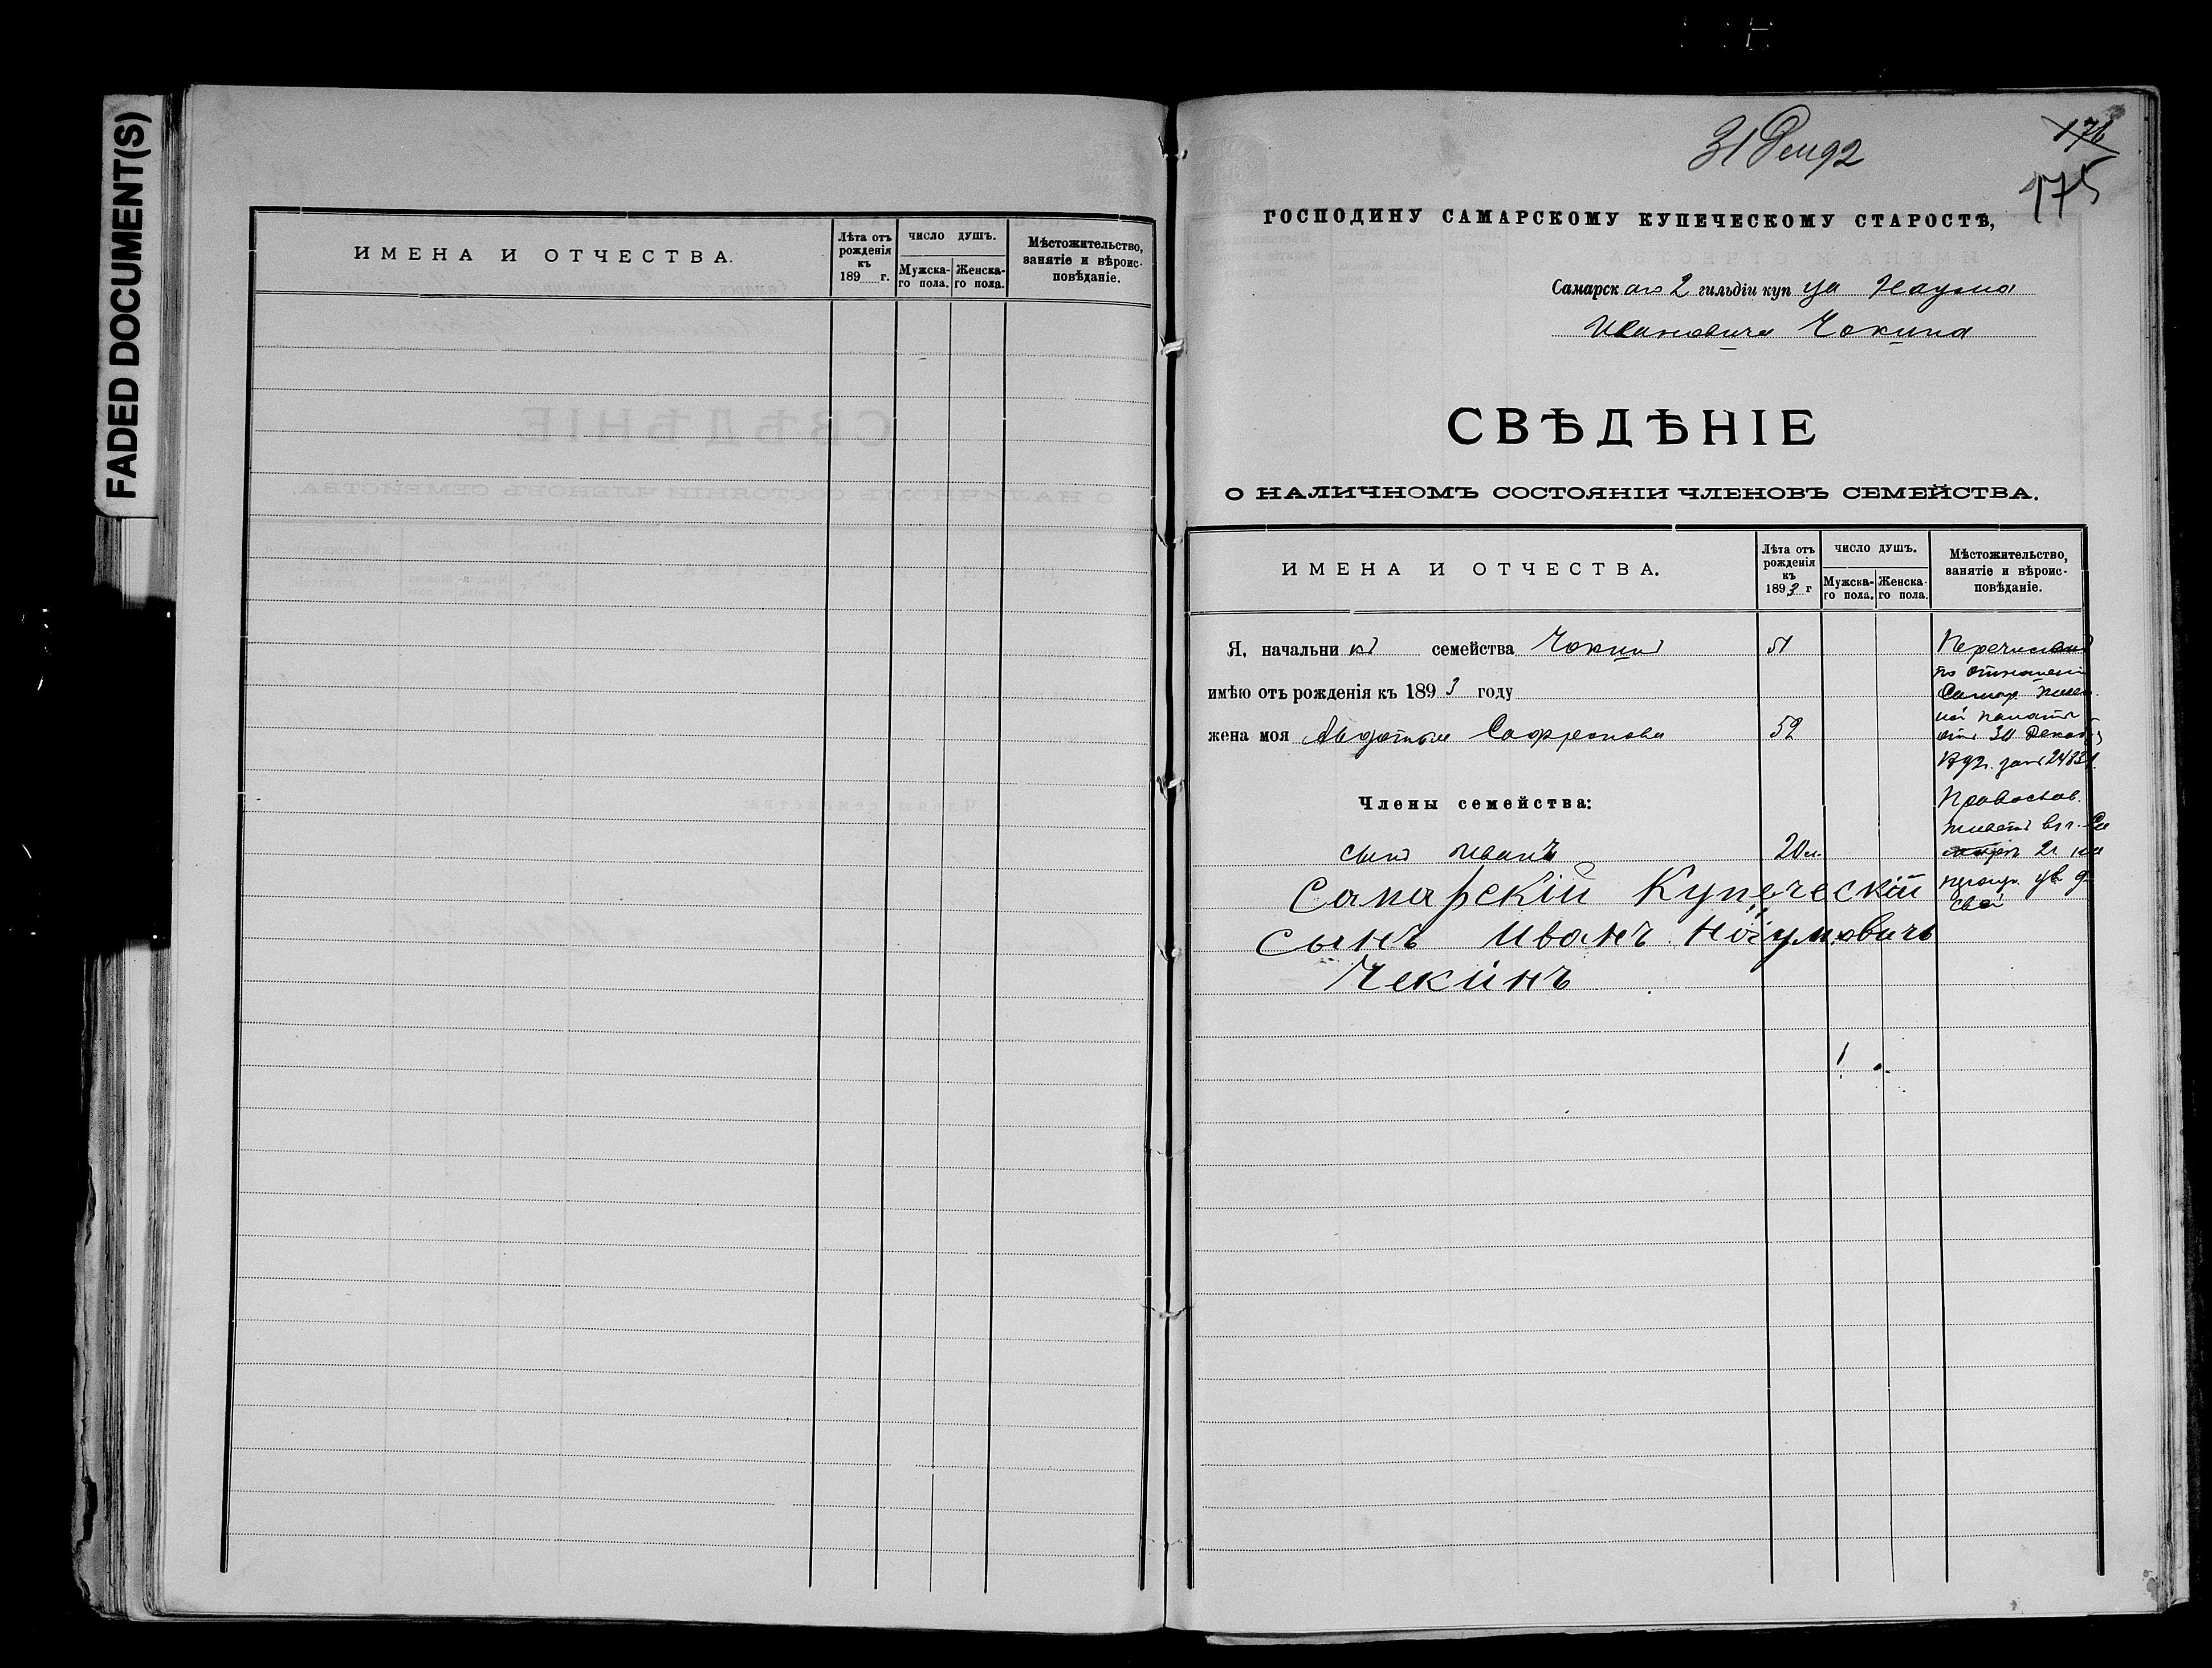 FADED DOCUMENT(S)
ИМЕНА И ОТЧЕСТВА.
Лѣта отъ рожденія къ 189 г.
ЧИСЛО ДУШЪ.
Мужска-го пола.
Женска-го пола.
Мѣстожительство, занятіе и вѣроис-повѣданіе.
31 Дек 92
176
175
ГОСПОДИНУ САМАРСКОМУ КУПЕЧЕСКОМУ СТАРОСТѢ,
Самарскаго 2 гильдіи купца Наума
Ивановича Чокина
СВѢДѢНІЕ
О НАЛИЧНОМЪ СОСТОЯНІИ ЧЛЕНОВЪ СЕМЕЙСТВА.
ИМЕНА И ОТЧЕСТВА.
Лѣта отъ рожденія къ 1893 г
ЧИСЛО ДУШЪ.
Мужска-го пола.
Женска-го пола.
Мѣстожительство, занятіе и вѣроис-повѣданіе.
Я, начальникъ семейства Чокинъ 51
имѣю отъ рожденія къ 1893 году
жена моя Авдотья Сафронова 52
Члены семейства:
сынъ Иванъ 20 л.
Самарскій Купеческій
сынъ Иванъ Наумовичь
Чекинъ
Перечисленъ
по отношенію
Самар. Казен
ной палаты
отъ 30 Декаб
1892 г. за № 2483
Православ.
живетъ въ г. Са